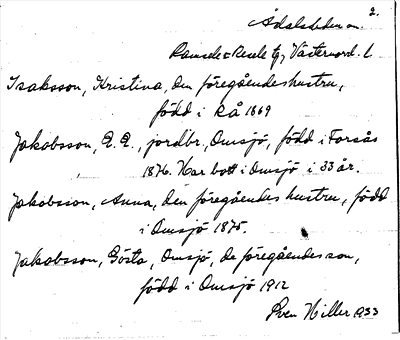 2.
Ådalsliden m.
Ramsele & Resele tg, Västernorrl. l.
Isaksson, Kristina, den föregåendes hustru,
född i Rå 1869
Jakobsson, E. E., jordbr., Omsjö, född i Forsås
1876. Har bott i Omsjö i 33 år.
Jakobsson, Anna, den föregåendes hustru, född
i Omsjö 1875.
Jakobsson, Gösta, Omsjö, de föregåendes son,
född i Omsjö 1912
Sven Hiller 1933